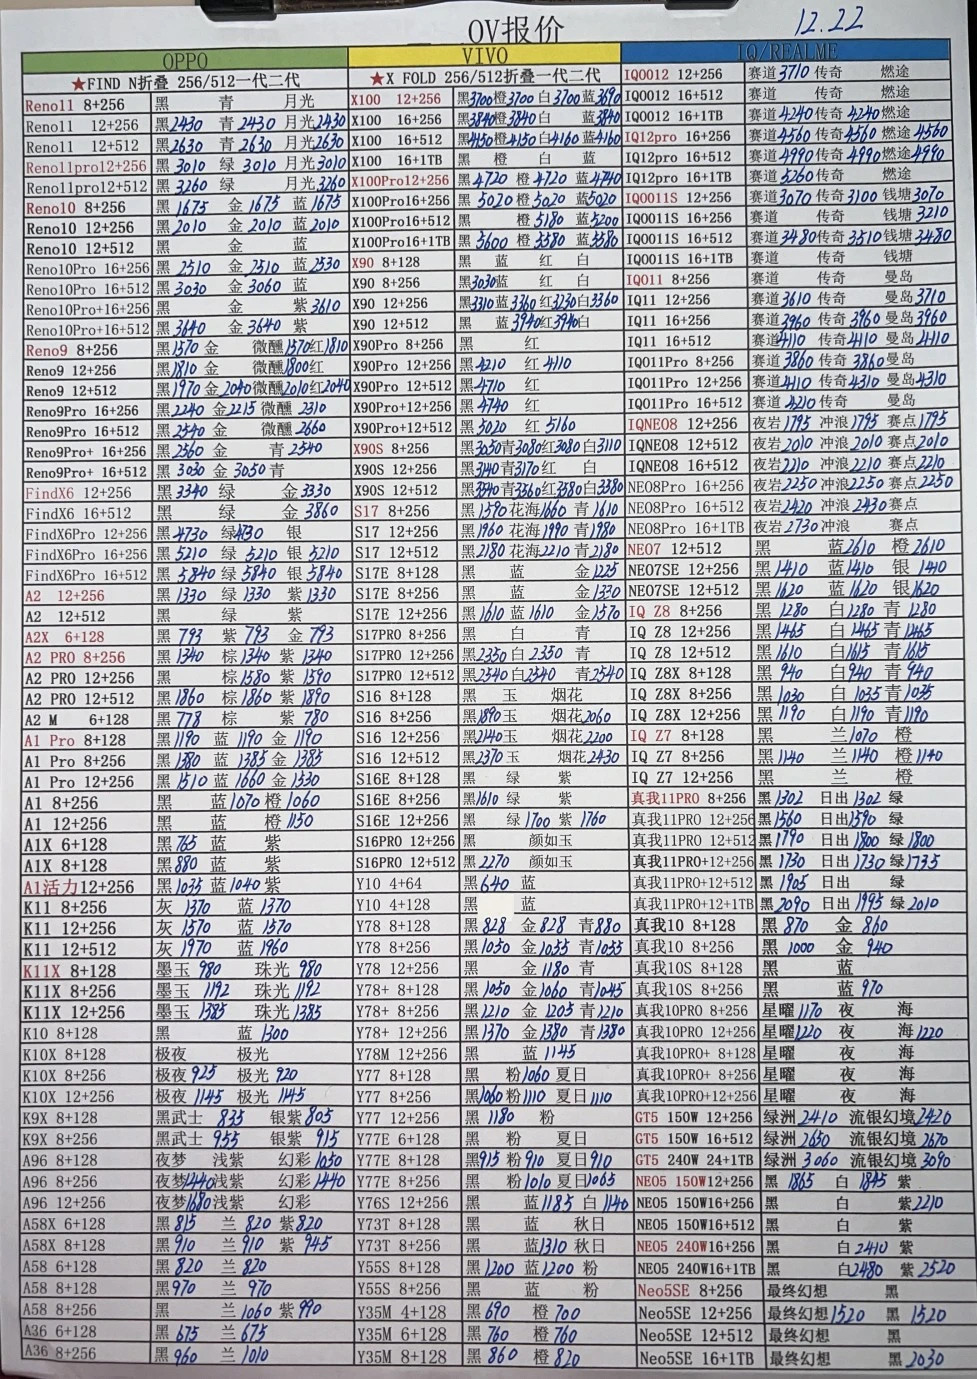 OV报价 12.22
OPPO VIVO IQ/REALME
★FIND N折叠 256/512一代二代 ★X FOLD 256/512折叠一代二代 IQOO12 12+256 赛道3710 传奇 燃途
Reno11 8+256 黑 青 月光 X100 12+256 黑3700橙3700白3700蓝3690 IQOO12 16+512 赛道 传奇 燃途
Reno11 12+256 黑2430 青2430 月光2430 X100 16+256 黑3840橙3840白 蓝3840 IQOO12 16+512 赛道4240传奇4240燃途
Reno11 12+512 黑2630 青2630 月光2630 X100 16+512 黑4150橙4150白4160蓝4160 IQ12pro 16+256 赛道4560传奇4560燃途4560
Reno11pro12+256 黑3010 绿3010 月光3010 X100 16+1TB 黑 橙 白 蓝 IQ12pro 16+512 赛道4990传奇4990燃途4990
Reno11pro12+512 黑3260 绿 月光3260 X100Pro12+256 黑4720 橙4720 蓝4740 IQ12pro 16+1TB 赛道5260传奇 燃途
Reno10 8+256 黑1675 金1675 蓝1675 X100Pro16+256 黑5020 橙5020 蓝5020 IQOO11S 12+256 赛道3070传奇3100钱塘3070
Reno10 12+256 黑2010 金2010 蓝2010 X100Pro16+512 黑 橙5180 蓝5200 IQOO11S 16+256 赛道 传奇 钱塘3210
Reno10 12+512 黑 金 蓝 X100Pro16+1TB 黑5600 橙5580 蓝5580 IQOO11S 16+512 赛道3480传奇3510钱塘3480
Reno10Pro 16+256 黑2510 金2510 蓝2530 X90 8+128 黑 蓝 红 白 IQOO11S 16+1TB 赛道 传奇 钱塘
Reno10Pro 16+512 黑3030 金3060 蓝 X90 8+256 黑3030蓝 红 白 IQO11 8+256 赛道 传奇 曼岛
Reno10Pro+16+256 黑 金 紫3610 X90 12+256 黑3310蓝3360红3230白3360 IQ11 12+256 赛道3610传奇 曼岛3710
Reno10Pro+16+512 黑3640 金3640 紫 X90 12+512 黑 蓝3940红3940白 IQ11 16+256 赛道3960传奇3960曼岛3960
Reno9 8+256 黑1570 金 微醺1570红1810 X90Pro 8+256 黑 红 IQ11 16+512 赛道4110传奇4110曼岛4110
Reno9 12+256 黑1810 金 微醺1800红 X90Pro 12+256 黑4210 红4110 IQO11Pro 8+256 赛道3860传奇3860曼岛
Reno9 12+512 黑1970 金2040微醺2010红2040 X90Pro 12+512 黑4710 红 IQO11Pro 12+256 赛道4110传奇4310曼岛4310
Reno9Pro 16+256 黑2240 金2215 微醺2310 X90Pro+12+256 黑4740 红 IQO11Pro 16+512 赛道4210传奇 曼岛
Reno9Pro 16+512 黑2540 金 微醺2660 X90Pro+12+512 黑5020 红5160 IQNEO8 12+256 夜岩1795冲浪1795赛点1795
Reno9Pro+ 16+256 黑2560 金 青2540 X90S 8+256 黑3050青3080红3080白3110 IQNEO8 12+512 夜岩2010冲浪2010赛点2010
Reno9Pro+ 16+512 黑3030 金3050青 X90S 12+256 黑3140青3170红 白 IQNEO8 16+512 夜岩2210冲浪2210赛点2210
FindX6 12+256 黑3340 绿 金3330 X90S 12+512 黑3340青3360红3380白3380 NEO8Pro 16+256 夜岩2250冲浪2250赛点2250
FindX6 16+512 黑 绿 金3860 S17 8+256 黑1590花海1660青1610 NEO8Pro 16+512 夜岩2420冲浪2430赛点
FindX6Pro 12+256 黑4730 绿4730 银 S17 12+256 黑1960花海1990青1980 NEO8Pro 16+1TB 夜岩2730冲浪 赛点
FindX6Pro 16+256 黑5210 绿5210 银5210 S17 12+512 黑2180花海2210青2180 NEO7 12+512 黑 蓝2610 橙2610
FindX6Pro 16+512 黑5840 绿5840 银5840 S17E 8+128 黑 蓝 金1225 NEO7SE 12+256 黑1410 蓝1410 银1410
A2 12+256 黑1330 绿1330 紫1330 S17E 8+256 黑 蓝 金1330 NEO7SE 12+512 黑1620 蓝1620 银1620
A2 12+512 黑 绿 紫 S17E 12+256 黑1610 蓝1610 金1570 IQ Z8 8+256 黑1280 白1280青1280
A2X 6+128 黑793 紫793 金793 S17PRO 8+256 黑 白 青 IQ Z8 12+256 黑1465 白1465青1465
A2 PRO 8+256 黑1340 棕1340 紫1340 S17PRO 12+256 黑2350白2350 青 IQ Z8 12+512 黑1610 白1615青1615
A2 PRO 12+256 黑 棕1580 紫1590 S17PRO 12+512 黑2540白2540 青2540 IQ Z8X 8+128 黑940 白940 青940
A2 PRO 12+512 黑1860 棕1860 紫1890 S16 8+128 黑 玉 烟花 IQ Z8X 8+256 黑1030 白1035青1035
A2 M 6+128 黑778 棕 紫780 S16 8+256 黑1890玉 烟花2060 IQ Z8X 12+256 黑1190 白1190青1190
A1 Pro 8+128 黑1190 蓝1190 金1190 S16 12+256 黑2140玉 烟花2200 IQ Z7 8+128 黑 兰1070 橙
A1 Pro 8+256 黑1380 蓝1385 金1385 S16 12+512 黑2370玉 烟花2430 IQ Z7 8+256 黑1140 兰1140 橙1140
A1 Pro 12+256 黑1510 蓝1660 金1530 S16E 8+128 黑 绿 紫 IQ Z7 12+256 黑 兰 橙
A1 8+256 黑 蓝1070 橙1060 S16E 8+256 黑1610 绿 紫 真我11PRO 8+256 黑1302 日出1302 绿
A1 12+256 黑 蓝 橙1150 S16E 12+256 黑 绿1700 紫1760 真我11PRO 12+256 黑1560 日出1590 绿
A1X 6+128 黑765 蓝 紫 S16PRO 12+256 黑 颜如玉 真我11PRO 12+512 黑1790 日出1800 绿1800
A1X 8+128 黑880 蓝 紫 S16PRO 12+512 黑2270 颜如玉 真我11PRO+12+256 黑1730 日出1730 绿1735
A1活力12+256 黑1035 蓝1040紫 Y10 4+64 黑640 蓝 真我11PRO+12+512 黑1905 日出 绿
K11 8+256 灰1370 蓝1370 Y10 4+128 黑 蓝 真我11PRO+12+1TB 黑2090 日出1995 绿2010
K11 12+256 灰1570 蓝1570 Y78 8+128 黑828 金828 青880 真我10 8+128 黑870 金860
K11 12+512 灰1970 蓝1960 Y78 8+256 黑1050 金1055 青1055 真我10 8+256 黑1000 金940
K11X 8+128 墨玉980 珠光980 Y78 12+256 黑 金1180 青 真我10S 8+128 黑 蓝
K11X 8+256 墨玉1192 珠光1192 Y78+ 8+128 黑1050 金1060 青1045 真我10S 8+256 黑 蓝970
K11X 12+256 墨玉1385 珠光1385 Y78+ 8+256 黑1210 金1205 青1210 真我10PRO 8+256 星曜1170 夜 海
K10 8+128 黑 蓝1300 Y78+ 12+256 黑1370 金1380 青1380 真我10PRO 12+256 星曜1220 夜 海1220
K10X 8+128 极夜 极光 Y78M 12+256 黑 蓝1145 真我10PRO+ 8+128 星曜 夜 海
K10X 8+256 极夜925 极光920 Y77 8+128 黑 粉1060 夏日 真我10PRO+ 8+256 星曜 夜 海
K10X 12+256 极夜1145 极光1145 Y77 8+256 黑1060 粉1110 夏日1110 真我10PRO+12+256 星曜 夜 海
K9X 8+128 黑武士835 银紫805 Y77 12+256 黑1180 粉 GT5 150W 12+256 绿洲2410 流银幻境2420
K9X 8+256 黑武士955 银紫915 Y77E 6+128 黑 粉 夏日 GT5 150W 16+512 绿洲2650 流银幻境2670
A96 8+128 夜梦 浅紫 幻彩1050 Y77E 8+128 黑915 粉910 夏日910 GT5 240W 24+1TB 绿洲3060 流银幻境3090
A96 8+256 夜梦1440浅紫 幻彩1440 Y77E 8+256 黑 粉1010 夏日1065 NEO5 150W12+256 黑1865 白1845 紫
A96 12+256 夜梦1680浅紫 幻彩 Y76S 12+256 黑 蓝1185 白1140 NEO5 150W16+256 黑 白 紫2210
A58X 6+128 黑815 兰820 紫820 Y73T 8+128 黑 蓝 秋日 NEO5 150W16+512 黑 白 紫
A58X 8+128 黑910 兰910 紫945 Y73T 8+256 黑 蓝1310 秋日 NEO5 240W16+256 黑 白2410 紫
A58 6+128 黑820 兰820 Y55S 8+128 黑1200 蓝1200 粉 NEO5 240W16+1TB 黑 白2480 紫2520
A58 8+128 黑970 兰970 Y55S 8+256 黑 蓝 粉 Neo5SE 8+256 最终幻想 黑
A58 8+256 黑 兰1060 紫990 Y35M 4+128 黑690 橙700 Neo5SE 12+256 最终幻想1520 黑1520
A36 6+128 黑675 兰675 Y35M 6+128 黑760 橙760 Neo5SE 12+512 最终幻想 黑
A36 8+256 黑960 兰1010 Y35M 8+128 黑860 橙820 Neo5SE 16+1TB 最终幻想 黑2030